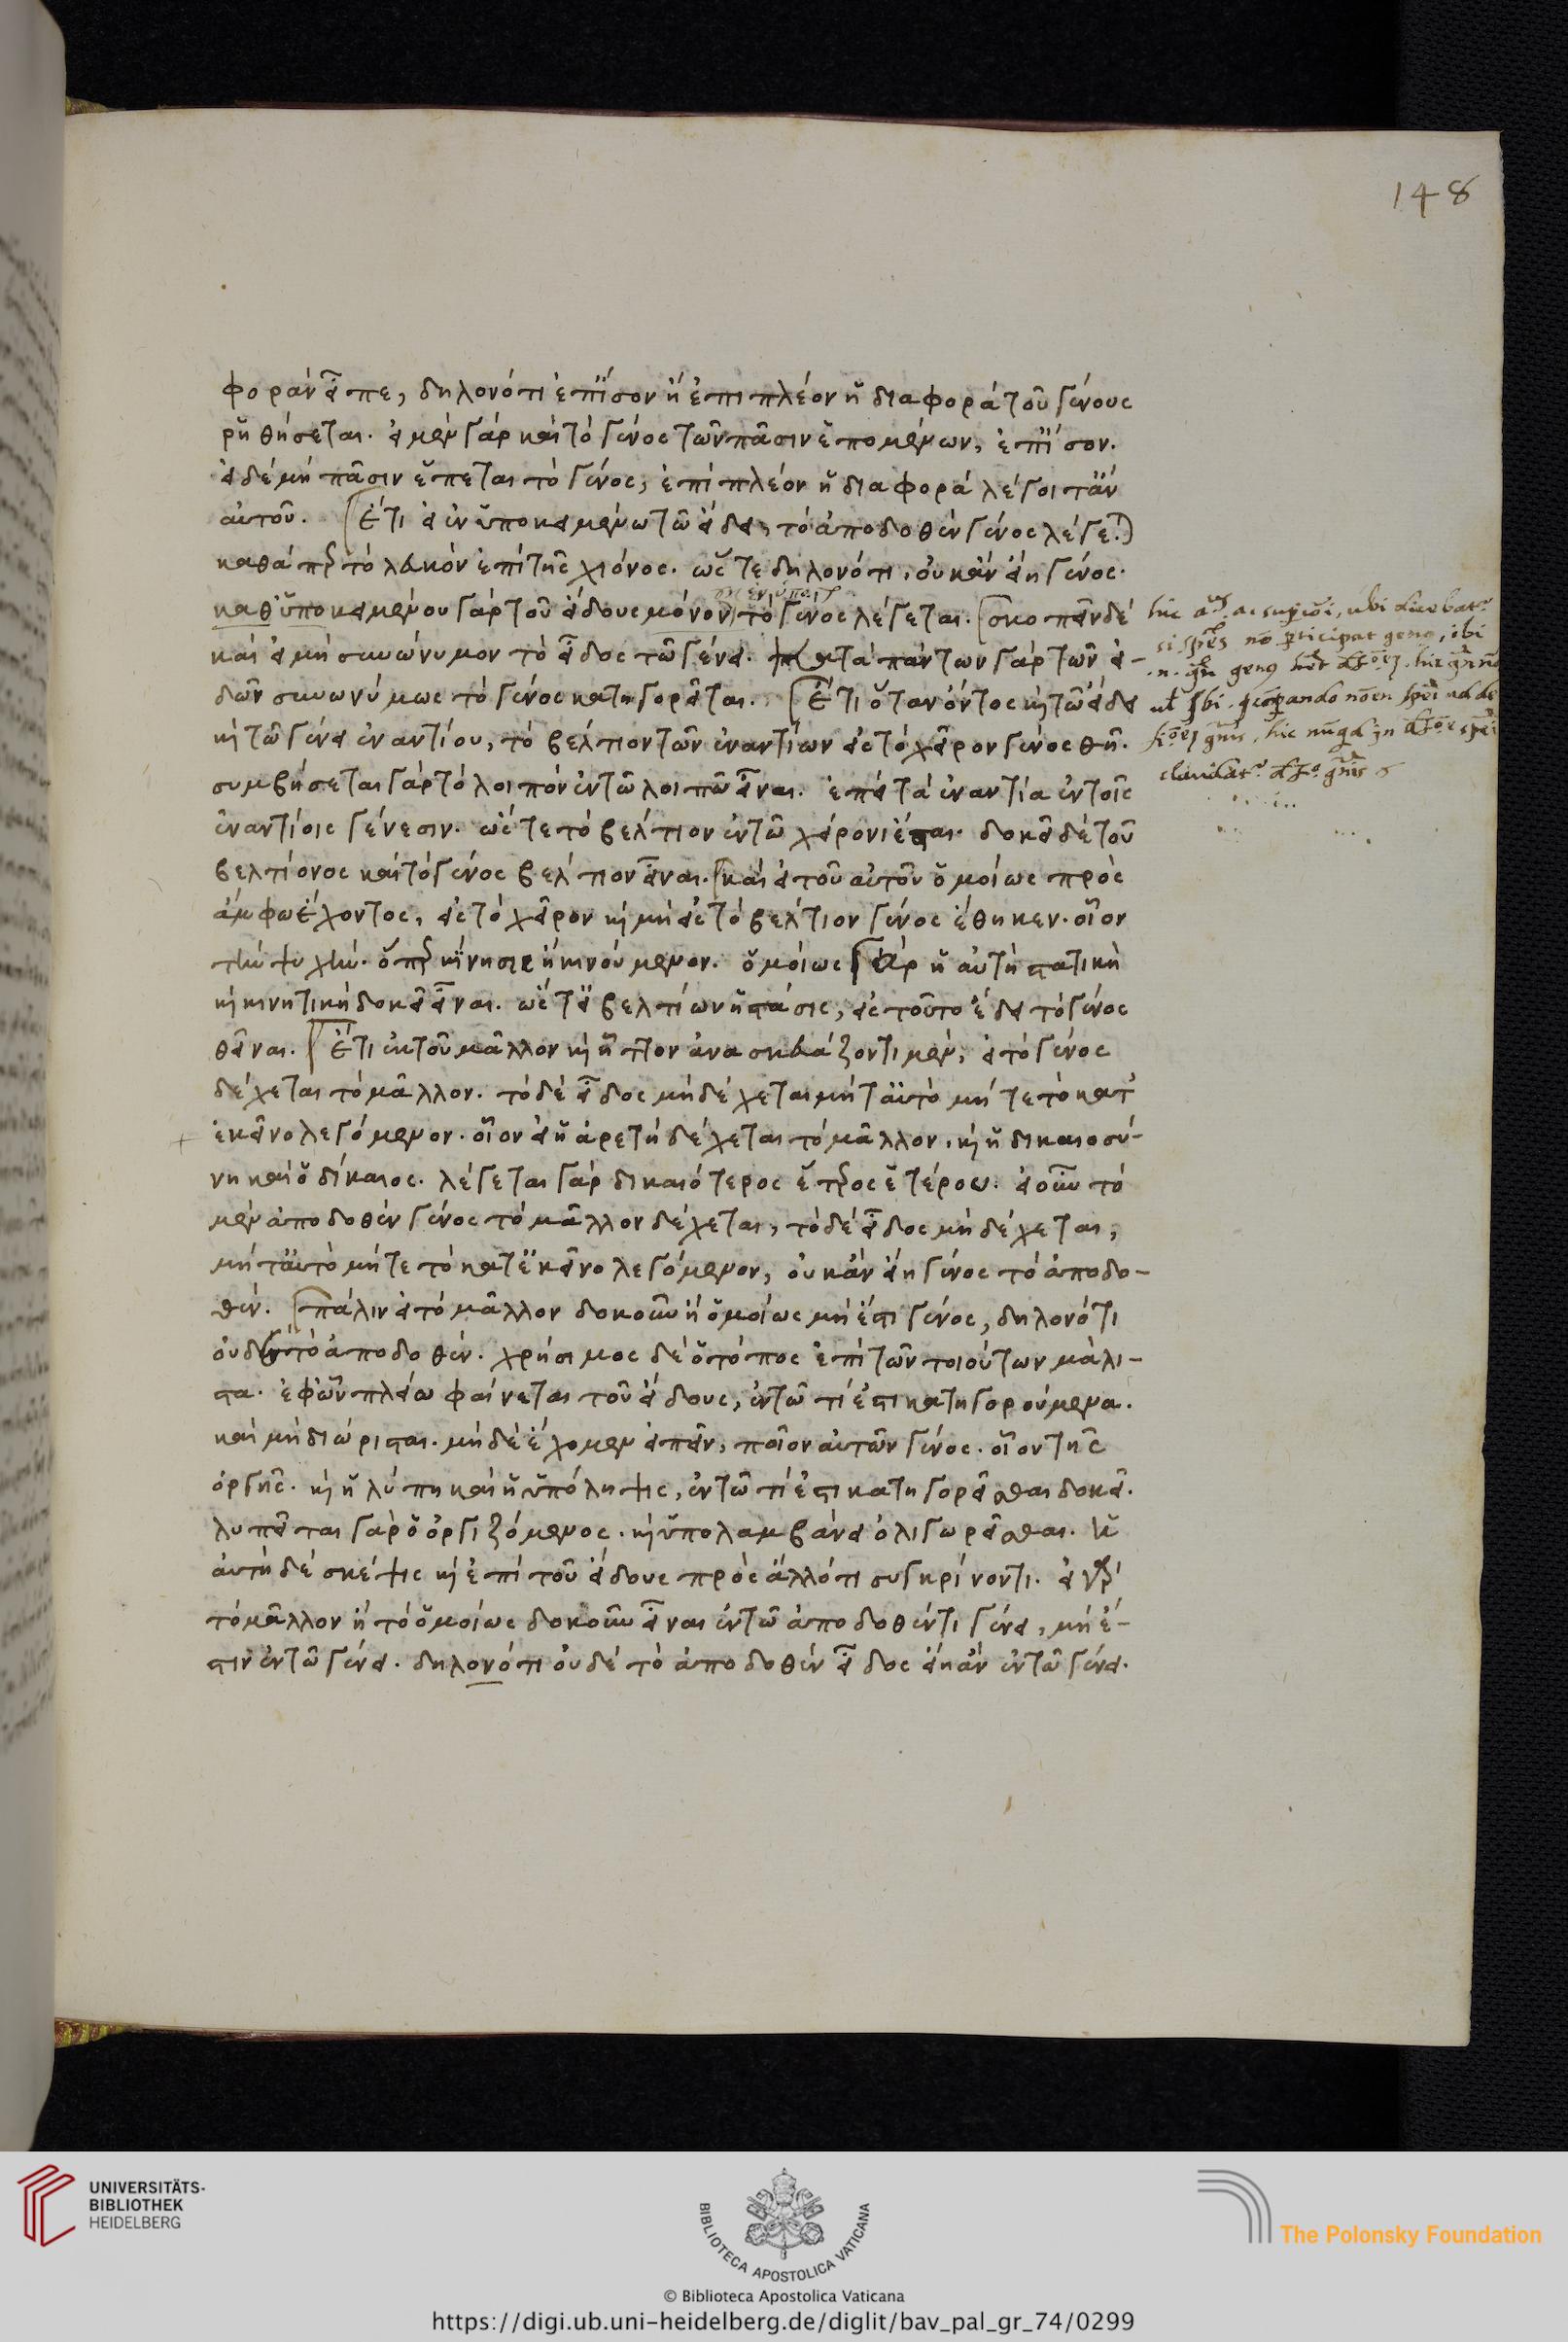 148
φορὰν εἶπε, δηλονότι ἐπίσον ἢ ἐπιπλέον ἡ διαφορὰ τοῦ γένους
ῥηθήσεται. εἰ μὲν γὰρ καὶ τὸ γένος τῶν πᾶσιν ἑπομένων, ἐπίσον.
εἰ δὲ μὴ πᾶσιν ἕπεται τὸ γένος, ἐπιπλέον ἡ διαφορὰ λέγοιτ' ἂν
αὐτοῦ. Ἔτι εἰ ἐν ὑποκειμένω τῶ εἴδει, τὸ ἀποδοθὲν γένος λέγε
καθάπερ τὸ λευκὸν ἐπὶ τῆς χιόνος. ὥστε δηλονότι, οὐκ ἂν εἴη γένος.
καθ' ὑποκειμένου γὰρ τοῦ εἴδους μόνον τὸ γένος λέγεται. σκοπεῖν δὲ
καὶ εἰ μὴ συνώνυμον τὸ εἶδος τῶ γένει. κατὰ πάντων γὰρ τῶν εἰ-
δῶν συνωνύμως τὸ γένος κατηγορεῖται. Ἔτι ὅταν ὄντος κὴ τῶ εἴδει
κὴ τῶ γένει ἐναντίου, τὸ βέλτιον τῶν ἐναντίων εἰς τὸ χεῖρον γένος θῆ.
συμβήσεται γὰρ τὸ λοιπὸν ἐν τῶ λοιπῶ εἶναι. ἐπεὶ τὰ ἐναντία ἐν τοῖς
ἐναντίοις γένεσιν. ὥστε τὸ βέλτιον ἐν τῶ χείρονι ἔσται. δοκεῖ δὲ τοῦ
βελτίονος καὶ τὸ γένος βέλτιον εἶναι. καὶ εἰ τοῦ αὐτοῦ ὁμοίως πρὸς
ἄμφω ἔχοντος, εἰς τὸ χεῖρον κὴ μὴ εἰς τὸ βέλτιον γένος ἔθηκεν. οἷον
τὴν ψυχὴν. ὅπερ κίνησις ἢ κινούμενον. ὁμοίως γὰρ ἡ αὐτὴ στατικὴ
κὴ κινητικὴ δοκεῖ εἶναι. ὥστ' εἰ βελτίων ἡ στάσις, εἰς τοῦτο ἔδει τὸ γένος
θεῖναι. Ἔτι ἐκ τοῦ μᾶλλον κὴ ἧττον ἀνασκευάζοντι μὲν, εἰ τὸ γένος
δέχεται τὸ μᾶλλον. τὸ δὲ εἶδος μὴ δέχεται μήτ' αὐτὸ μήτε τὸ κατ'
ἐκεῖνο λεγόμενον. οἷον εἰ ἡ ἀρετὴ δέχεται τὸ μᾶλλον, κὴ ἡ δικαιοσύ-
νη καὶ ὁ δίκαιος. λέγεται γὰρ δικαιότερος ἕτερος ἑτέρου. εἰ οὖν τὸ
μὲν ἀποδοθὲν γένος τὸ μᾶλλον δέχεται, τὸ δὲ εἶδος μὴ δέχεται,
μήτ' αὐτὸ μήτε τὸ κατ' ἐκεῖνο λεγόμενον, οὐκ ἂν εἴη γένος τὸ ἀποδο-
θέν. πάλιν εἰ τὸ μᾶλλον δοκοῦν ἢ ὁμοίως μὴ ἔστι γένος, δηλονότι
οὐδὲ τὸ ἀποδοθέν. χρήσιμος δὲ ὁ τόπος ἐπὶ τῶν τοιούτων μάλι-
στα. ἐφ' ὧν πλείω φαίνεται τοῦ εἴδους, ἐν τῶ τί ἐστι κατηγορούμενα.
καὶ μὴ διώρισται. μηδὲ ἔχομεν εἰπεῖν, ποῖον αὐτῶν γένος. οἷον τῆς
ὀργῆς. κὴ ἡ λύπη καὶ ἡ ὑπόληψις, ἐν τῶ τί ἐστι κατηγορεῖσθαι δοκεῖ.
λυπεῖται γὰρ ὁ ὀργιζόμενος. κὴ ὑπολαμβάνει ὀλιγωρεῖσθαι. ἡ
αὐτὴ δὲ σκέψις κὴ ἐπὶ τοῦ εἴδους πρὸς ἄλλό τι συγκρίνοντι. εἰ γὰρ
τὸ μᾶλλον ἢ τὸ ὁμοίως δοκοῦν εἶναι ἐν τῶ ἀποδοθέντι γένει, μὴ ἔ-
στιν ἐν τῶ γένει. δηλονότι οὐδὲ τὸ ἀποδοθὲν εἶδος εἴη ἂν ἐν τῶ γένει.
UNIVERSITÄTS-
BIBLIOTHEK
HEIDELBERG
BIBLIOTECA APOSTOLICA VATICANA
The Polonsky Foundation
© Biblioteca Apostolica Vaticana
https://digi.ub.uni-heidelberg.de/diglit/bav_pal_gr_74/0299